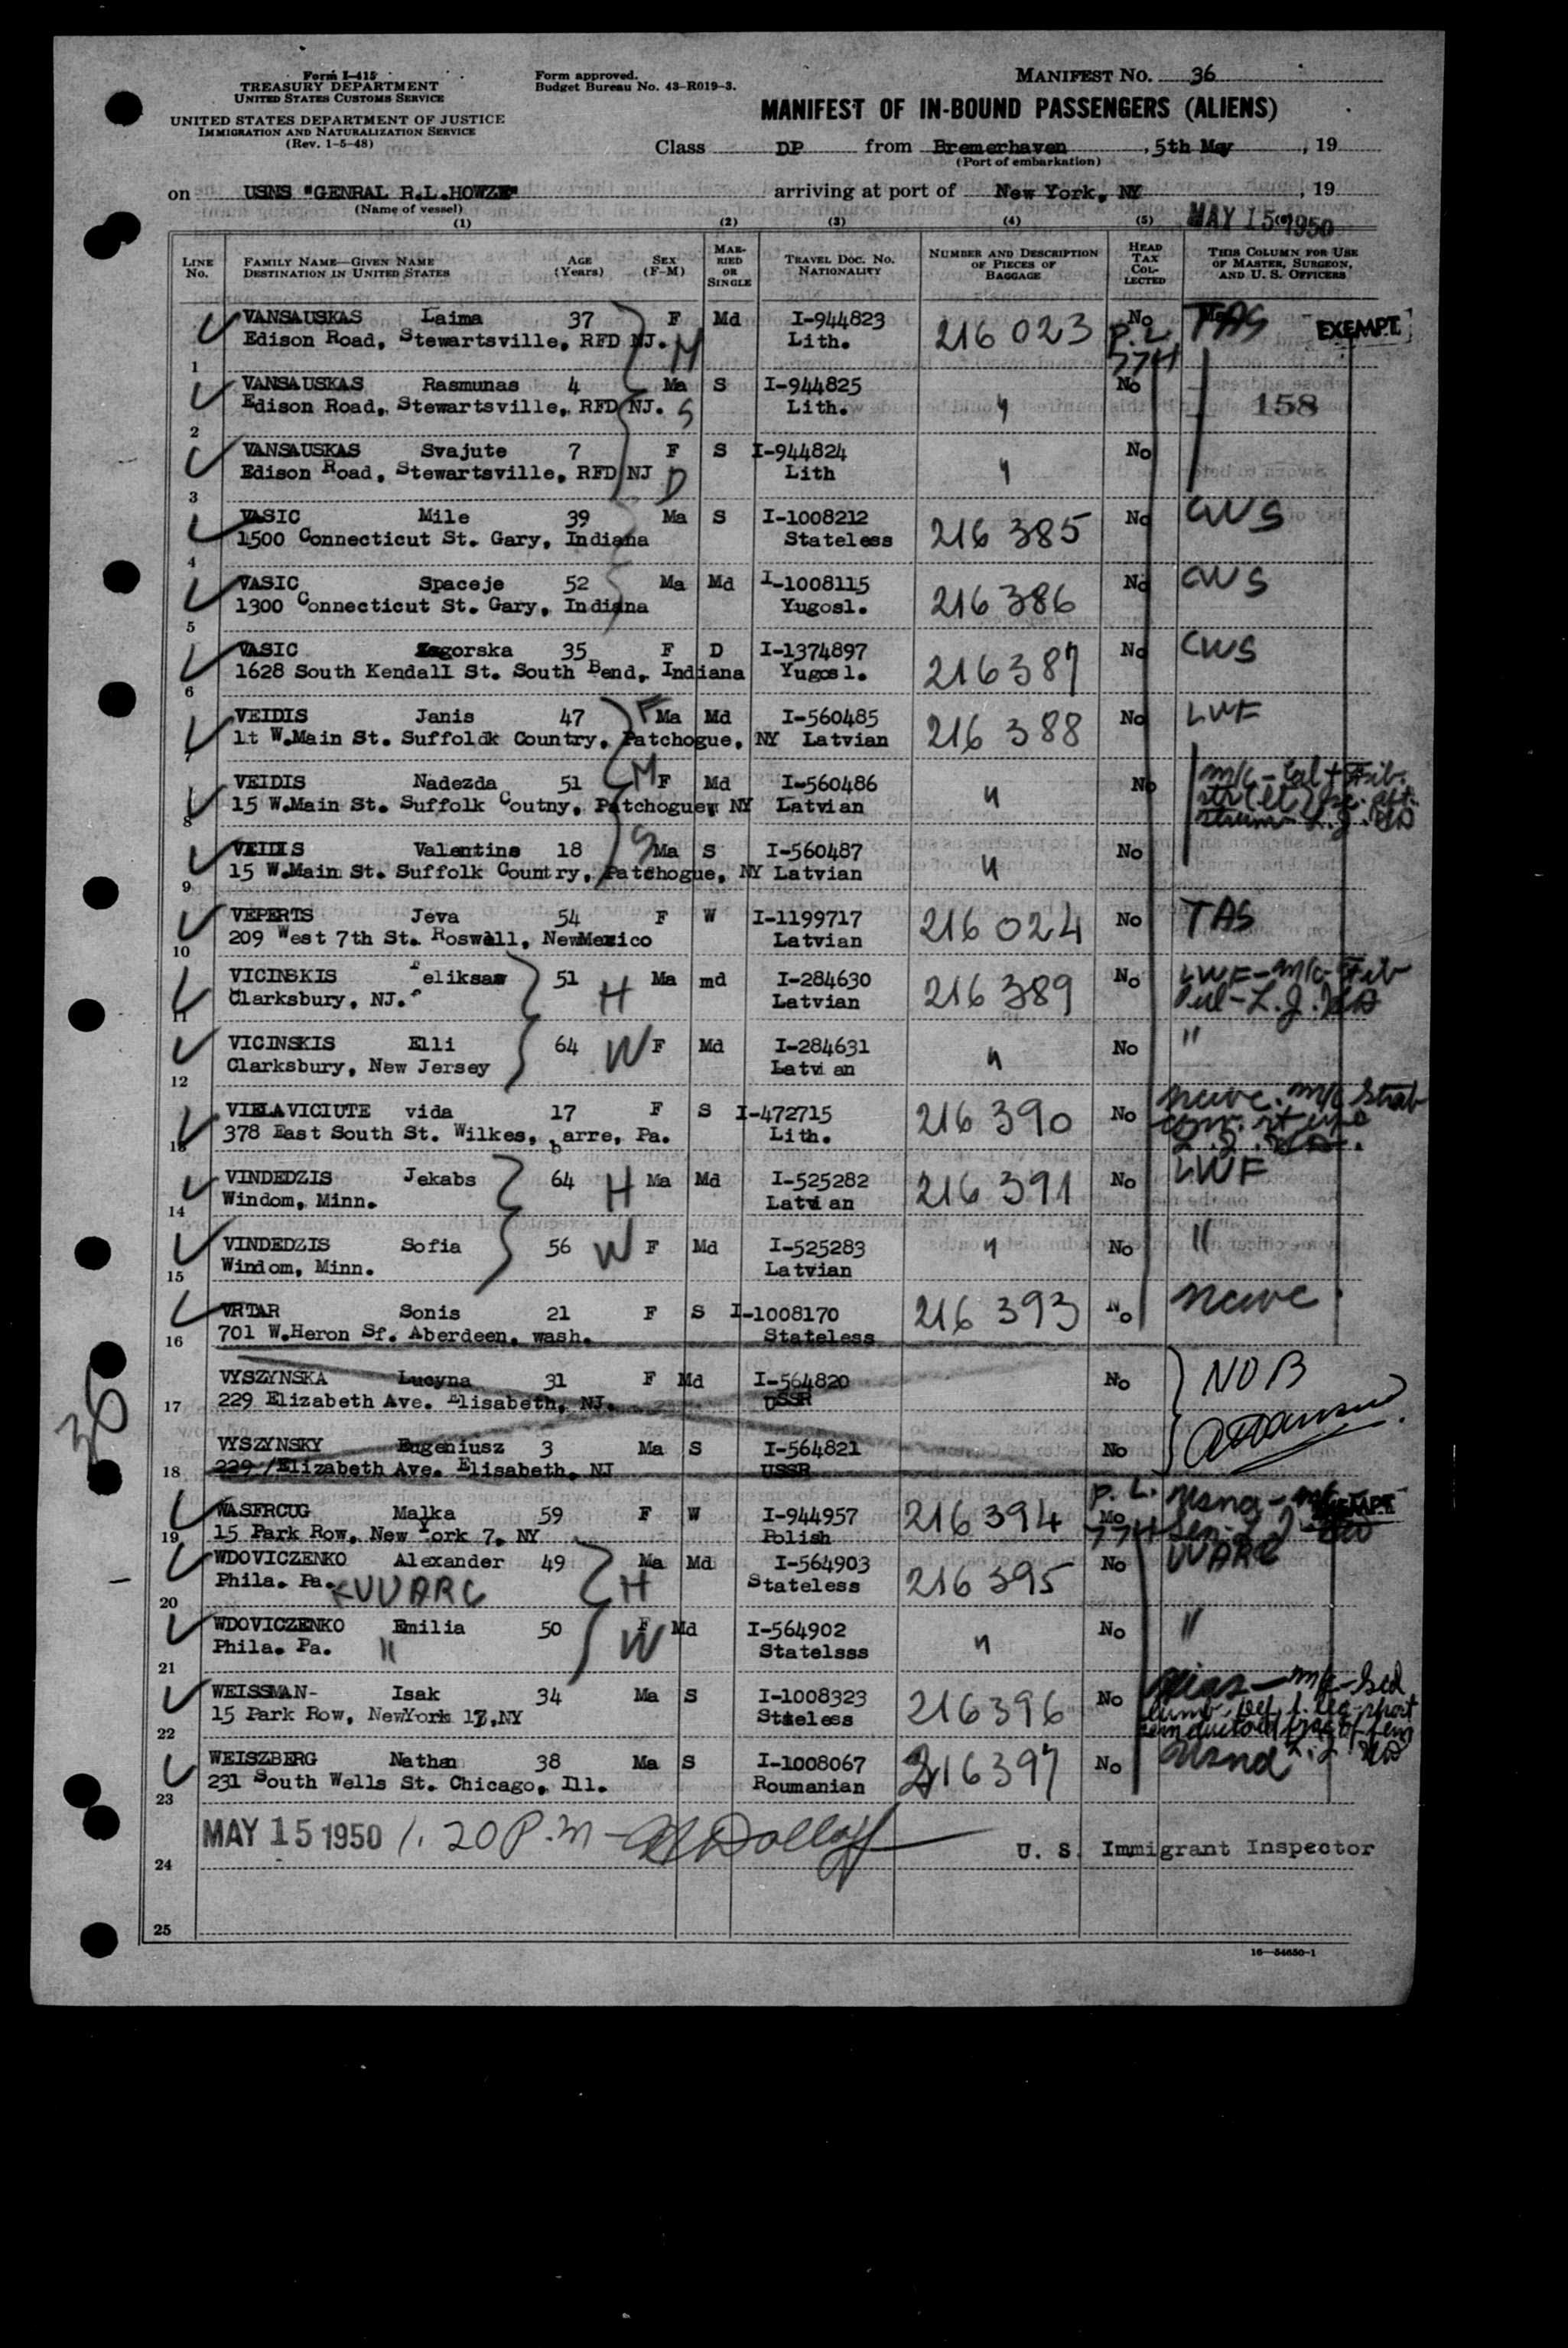 Form I-415
TREASURY DEPARTMENT
UNITED STATES CUSTOMS SERVICE
UNITED STATES DEPARTMENT OF JUSTICE
IMMIGRATION AND NATURALIZATION SERVICE
(Rev. 1-5-48)
Form approved.
Budget Bureau No. 43-R019-3.
MANIFEST NO. 36
MANIFEST OF IN-BOUND PASSENGERS (ALIENS)
Class DP from Bremerhaven, 5th May, 19
(Port of embarkation)
on USNS "GENRAL R.L.HOWZE" arriving at port of New York, NY, 19
(Name of vessel)
MAY 15 1950
(1) (2) (3) (4) (5) (6)
LINE No. FAMILY NAME—GIVEN NAME DESTINATION IN UNITED STATES AGE (Years) SEX (F-M) MARRIED OR SINGLE TRAVEL DOC. NO. NATIONALITY NUMBER AND DESCRIPTION OF PIECES OF BAGGAGE HEAD TAX COLLECTED THIS COLUMN FOR USE OF MASTER, SURGEON, AND U. S. OFFICERS
VANSAUSKAS Laima 37 F Md I-944823 216 023 No P.L. TAS EXEMPT
1 Edison Road, Stewartsville, RFD NJ. M Lith. 774
VANSAUSKAS Rasmunas 4 Ma S I-944825 " No
2 Edison Road, Stewartsville, RFD NJ. S Lith. 158
VANSAUSKAS Svajute 7 F S I-944824 " No
3 Edison Road, Stewartsville, RFD NJ D Lith
VASIC Mile 39 Ma S I-1008212 216 385 No CWS
4 1500 Connecticut St. Gary, Indiana Stateless
VASIC Spaceje 52 Ma Md I-1008115 216 386 No CWS
5 1300 Connecticut St. Gary, Indiana Yugosl.
VASIC Zagorska 35 F D I-1374897 216 387 No CWS
6 1628 South Kendall St. South Bend, Indiana Yugosl.
VEIDIS Janis 47 F Ma Md I-560485 216 388 No LWF
7 1t W.Main St. Suffoldk Country, Patchogue, NY Latvian
VEIDIS Nadezda 51 M F Md I-560486 " No
8 15 W.Main St. Suffolk Coutny, Patchogue, NY Latvian
VEIDIS Valentins 18 S Ma S I-560487 " No
9 15 W.Main St. Suffolk Country, Patchogue, NY Latvian
VEPERTS Jeva 54 F W I-1199717 216 024 No TAS
10 209 West 7th St. Roswell, NewMexico Latvian
VICINSKIS Feliksas 51 H Ma md I-284630 216 389 No LWF - m/c - Fib
11 Clarksbury, NJ. Latvian Pul - L.J.
VICINSKIS Elli 64 W F Md I-284631 " No "
12 Clarksbury, New Jersey Latvi an
VIELAVICIUTE vida 17 F S I-472715 216 390 No
13 378 East South St. Wilkes, barre, Pa. Lith.
VINDEDZIS Jekabs 64 H Ma Md I-525282 216 391 No LWF
14 Windom, Minn. Latvi an
VINDEDZIS Sofia 56 W F Md I-525283 " No "
15 Windom, Minn. Latvian
VRTAR Sonis 21 F S I-1008170 216 393 No ncwc
16 701 W.Heron St. Aberdeen, wash. Stateless
VYSZYNSKA Lucyna 31 F Md I-564820 No NOB
17 229 Elizabeth Ave. Elisabeth, NJ. USSR
VYSZYNSKY Eugeniusz 3 Ma S I-564821 No
18 229 Elizabeth Ave. Elisabeth, NJ USSR
WASFRCUG Malka 59 F W I-944957 216 394 P.L. No 774 usna EXEMPT
19 15 Park Row, New York 7, NY Polish
WDOVICZENKO Alexander 49 H Ma Md I-564903 216 395 No WARC
20 Phila. Pa. WARC Stateless
WDOVICZENKO Emilia 50 W F Md I-564902 " No "
21 Phila. Pa. " Statelsss
WEISSMAN- Isak 34 Ma S I-1008323 216 396 No
22 15 Park Row, NewYork 17,NY Stateless
WEISZBERG Nathan 38 Ma S I-1008067 216 397 No usna
23 231 South Wells St. Chicago, Ill. Roumanian
24 MAY 15 1950 1.20 P.m U. S. Immigrant Inspector
25
36
16—54650-1